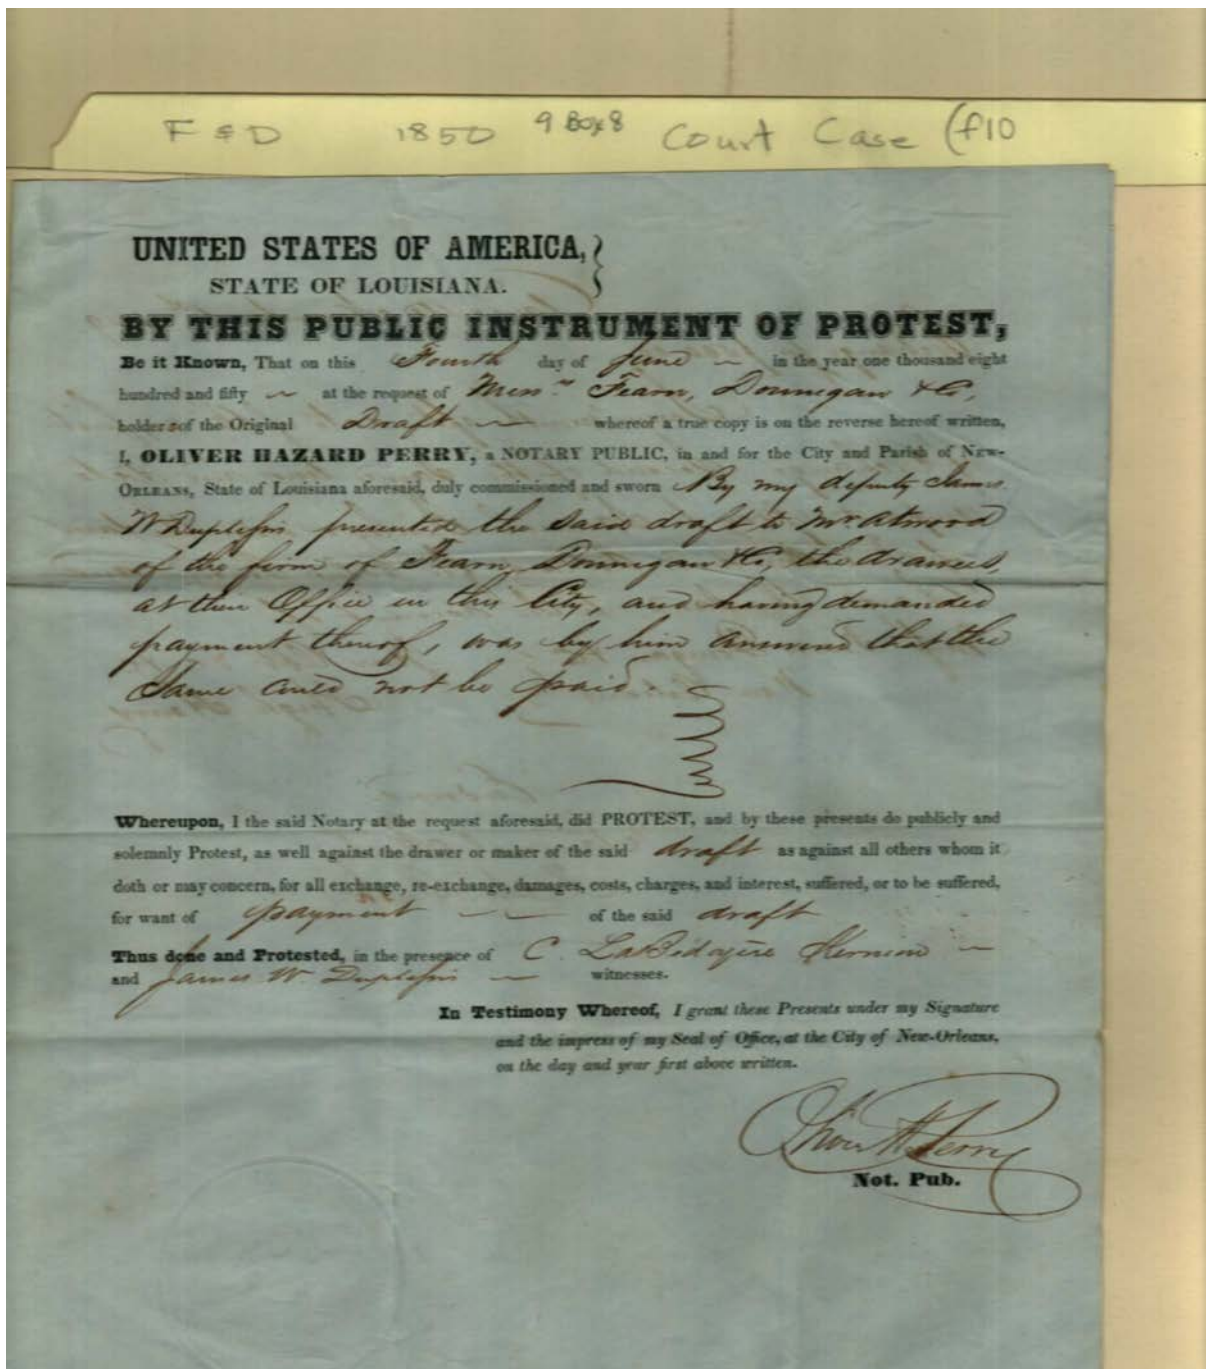 F & D 1850 9 Box 8 Court Case (f10
UNITED STATES OF AMERICA,
STATE OF LOUISIANA.
BY THIS PUBLIC INSTRUMENT OF PROTEST,
Be it Known, That on this Fourth day of June in the year one thousand eight
hundred and fifty at the request of Messrs Fearn, Donnegan & Co,
holders of the Original Draft whereof a true copy is on the reverse hereof written,
I, OLIVER HAZARD PERRY, a NOTARY PUBLIC, in and for the City and Parish of NEW-
ORLEANS, State of Louisiana aforesaid, duly commissioned and sworn By my deputy James
W Duplessis presented the said draft to Mr Atwood
of the firm of Fearn, Donnegan & Co, the drawees,
at their Office in this City, and having demanded
payment thereof, was by him answered that the
Same could not be paid.
Whereupon, I the said Notary at the request aforesaid, did PROTEST, and by these presents do publicly and
solemnly Protest, as well against the drawer or maker of the said draft as against all others whom it
doth or may concern, for all exchange, re-exchange, damages, costs, charges, and interest, suffered, or to be suffered,
for want of payment of the said draft
Thus done and Protested, in the presence of C.
and James W. Duplessis witnesses.
In Testimony Whereof, I grant these Presents under my Signature
and the impress of my Seal of Office, at the City of New-Orleans,
on the day and year first above written.
Oliver H Perry
Not. Pub.